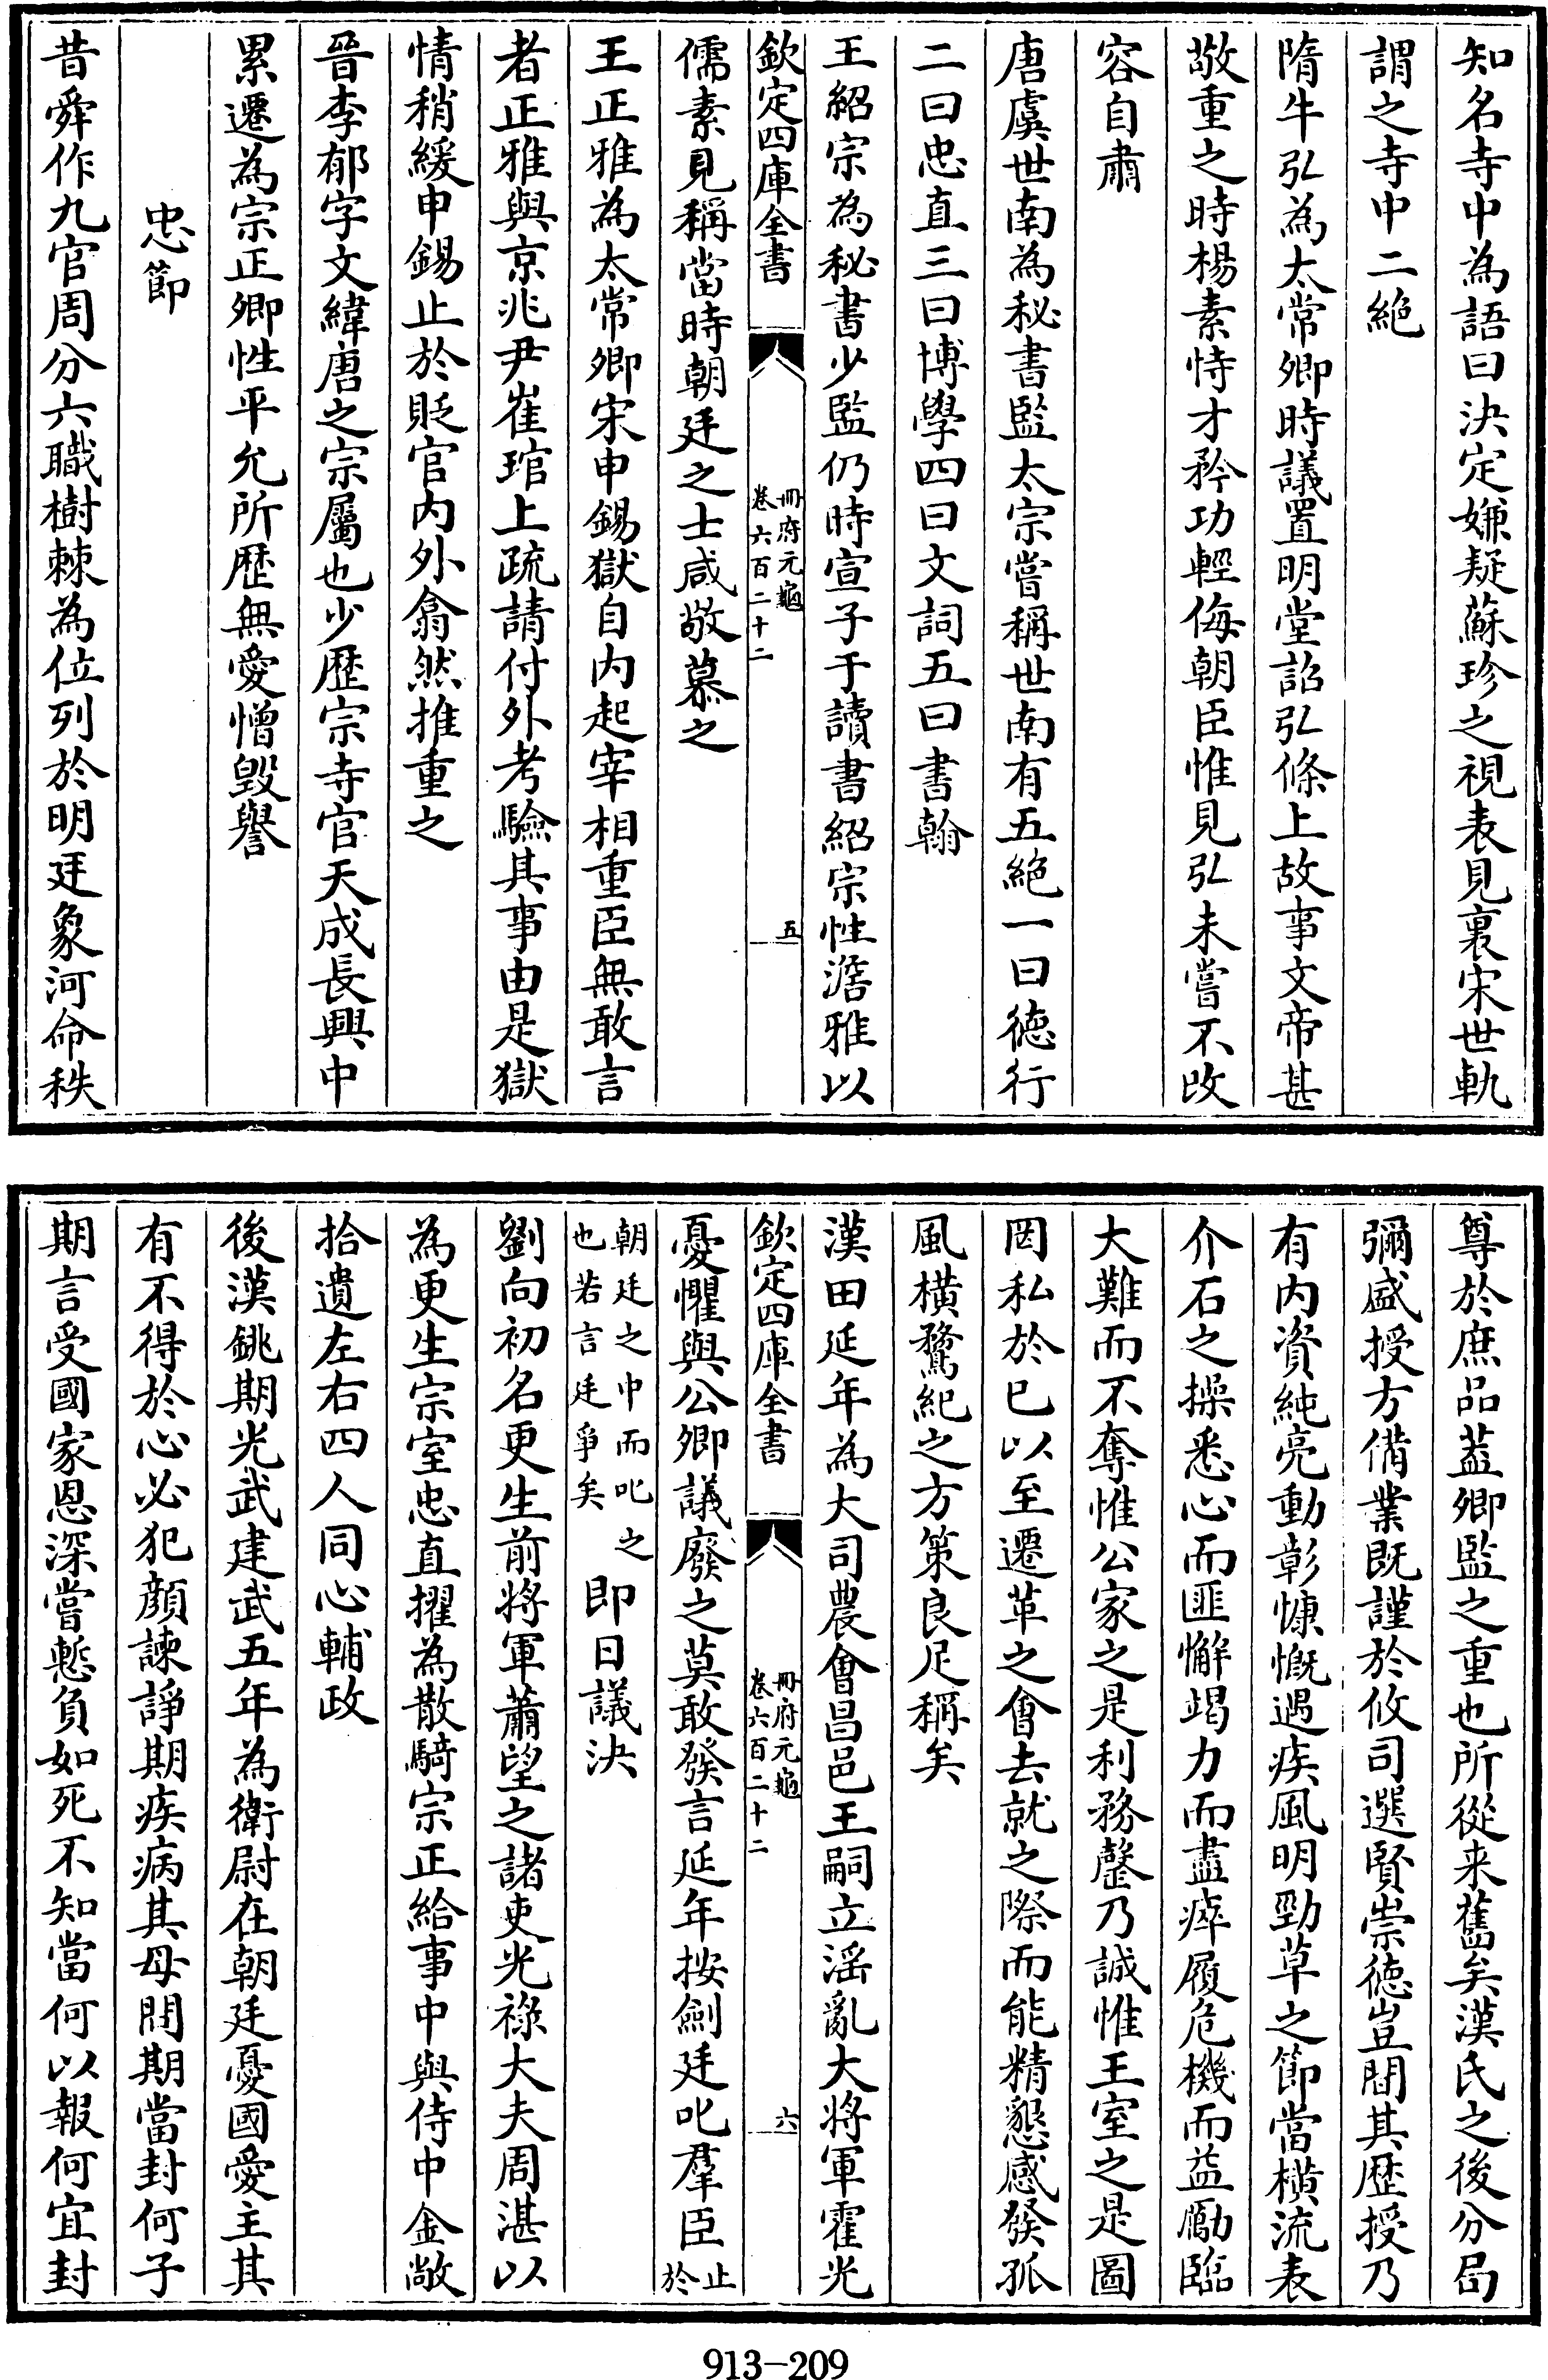 知名寺中為語曰決定嫌疑蘇珍之視表見裏宋世軌
謂之寺中二絶
隋牛弘為太常卿時議置明堂詔弘條上故事文帝甚
敬重之時楊素恃才矜功輕侮朝臣惟見弘未嘗不改
容自肅
唐虞世南為秘書監太宗嘗稱世南有五絶一曰徳行
二曰忠直三曰博學四曰文詞五曰書翰
王紹宗為秘書少監仍時宣子于讀書紹宗性澹雅以
欽定四庫全書
冊府元龜
卷六百二十二
五
儒素見稱當時朝廷之士咸敬慕之
王正雅為太常卿宋申錫獄自内起宰相重臣無敢言
者正雅與京兆尹崔琯上疏請付外考驗其事由是獄
情稍緩申錫止於貶官内外翕然推重之
晉李郁字文緯唐之宗屬也少歴宗寺官天成長興中
累遷為宗正卿性平允所歴無愛憎毁譽
忠節
昔舜作九官周分六職樹棘為位列於明廷象河命秩
尊於庶品葢卿監之重也所從来舊矣漢氏之後分局
彌盛授方偹業既謹於攸司選賢崇徳豈間其歴授乃
有内資純亮動彰慷慨遇疾風明勁草之節當横流表
介石之操悉心而匪懈竭力而盡瘁履危機而益勵臨
大難而不奪惟公家之是利務罄乃誠惟王室之是圖
罔私於已以至遷革之會去就之際而能精懇感發孤
風横騖紀之方策良足稱矣
漢田延年為大司農會昌邑王嗣立淫亂大將軍霍光
欽定四庫全書
冊府元龜
卷六百二十二
六
憂懼與公卿議廢之莫敢發言延年按劍廷叱羣臣止
於
朝廷之中而叱之
也若言廷爭矣
即日議決
劉向初名更生前將軍蕭望之諸吏光祿大夫周湛以
為更生宗室忠直擢為散騎宗正給事中與侍中金敞
拾遺左右四人同心輔政
後漢銚期光武建武五年為衛尉在朝廷憂國愛主其
有不得於心必犯顔諫諍期疾病其母問期當封何子
期言受國家恩深嘗慙負如死不知當何以報何宜封
913-209